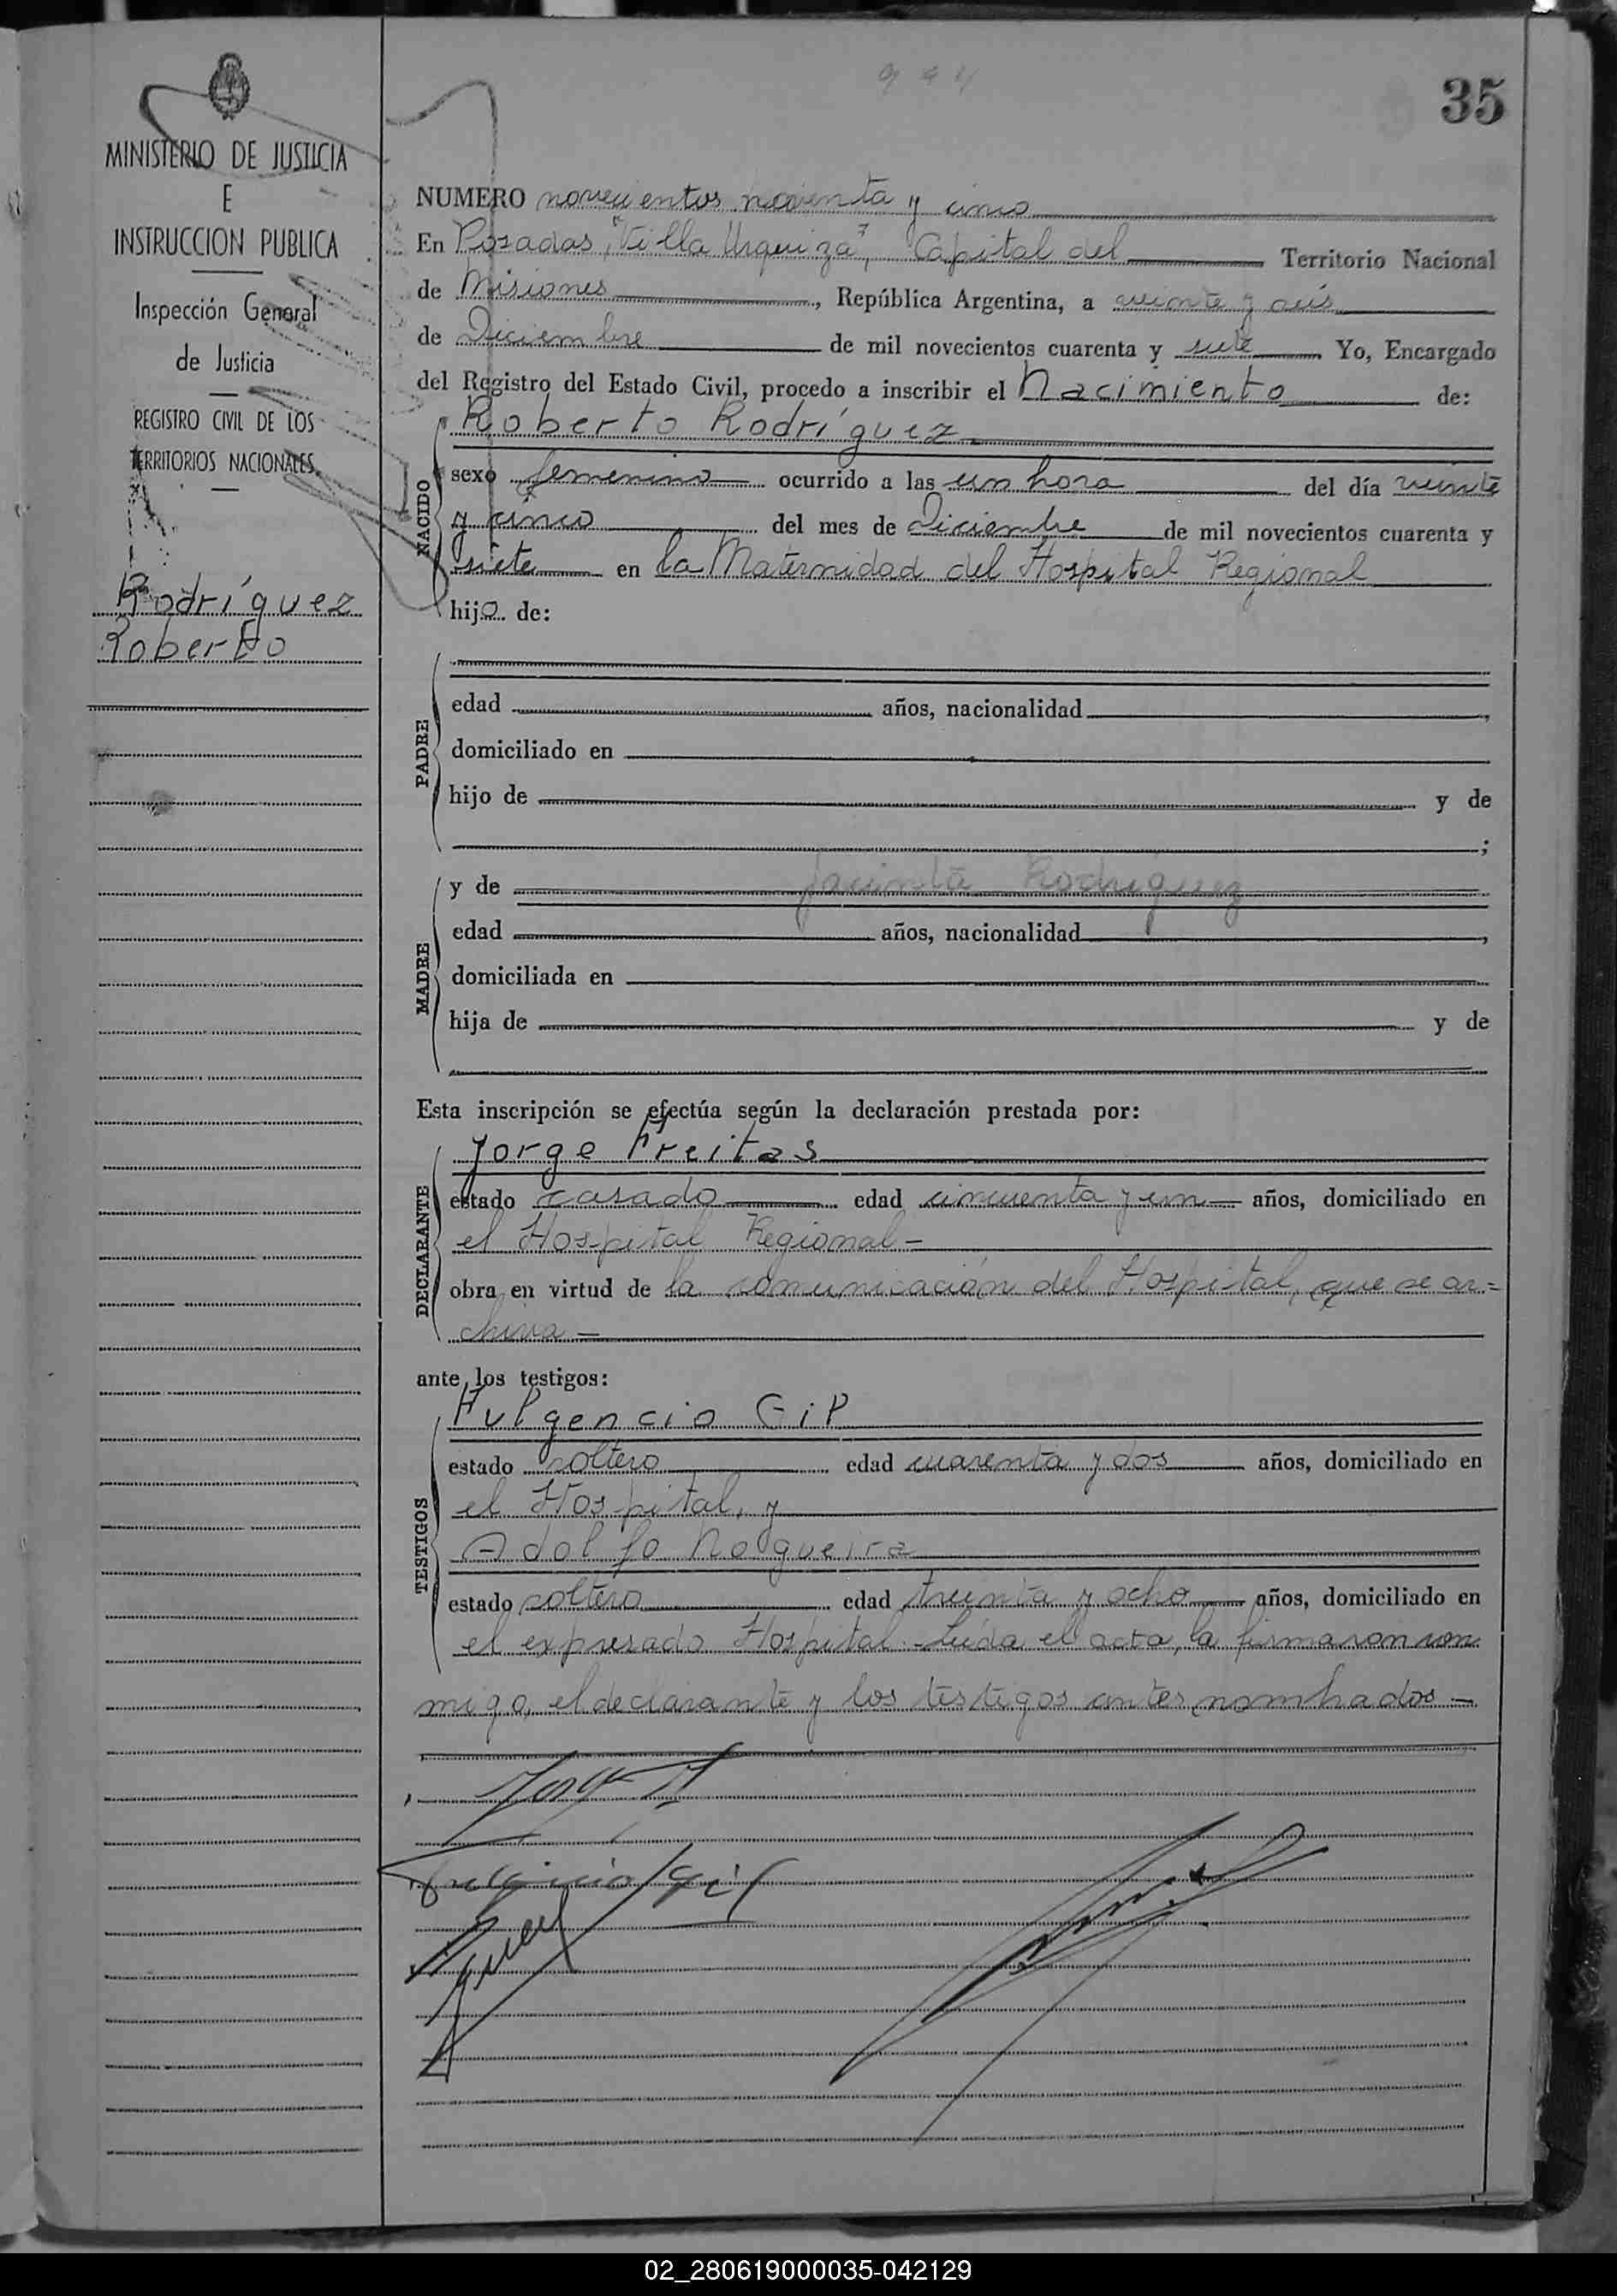 35
MINISTERIO DE JUSTICIA
E
INSTRUCCION PUBLICA
Inspección General
de Justicia
REGISTRO CIVIL DE LOS
TERRITORIOS NACIONALES
Rodríguez
Roberto
NUMERO novecientos noventa y cinco
En Posadas, "Villa Urquiza", Capital del Territorio Nacional
de Misiones, República Argentina, a veinte y seis
de Diciembre de mil novecientos cuarenta y siete Yo, Encargado
del Registro del Estado Civil, procedo a inscribir el Nacimiento de:
NACIDO
Roberto Rodríguez
sexo femenino ocurrido a las un hora del día veinte
y cinco del mes de Diciembre de mil novecientos cuarenta y
siete en la Maternidad del Hospital Regional
hijo de:
PADRE
edad años, nacionalidad,
domiciliado en
hijo de y de
;
MADRE
y de Jacinta Rodríguez
edad años, nacionalidad,
domiciliada en
hija de y de
Esta inscripción se efectúa según la declaración prestada por:
DECLARANTE
Jorge Freitas
estado casado edad cincuenta y un años, domiciliado en
el Hospital Regional-
obra en virtud de la comunicación del Hospital, que se ar=
chiva-
ante los testigos:
TESTIGOS
Fulgencio Gil
estado soltero edad cuarenta y dos años, domiciliado en
el Hospital, y
Adolfo Nogueira
estado soltero edad treinta y ocho años, domiciliado en
el expresado Hospital.- Leída el acta, la firmaron con
migo, el declarante y los testigos antes nombrados-
Fulgencio Gil
02_280619000035-042129